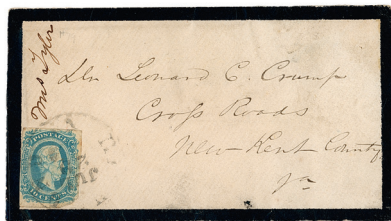 Mrs Tyler
Dr Leonard C. Crump
Cross Roads
New Kent County
Va
POSTAGE